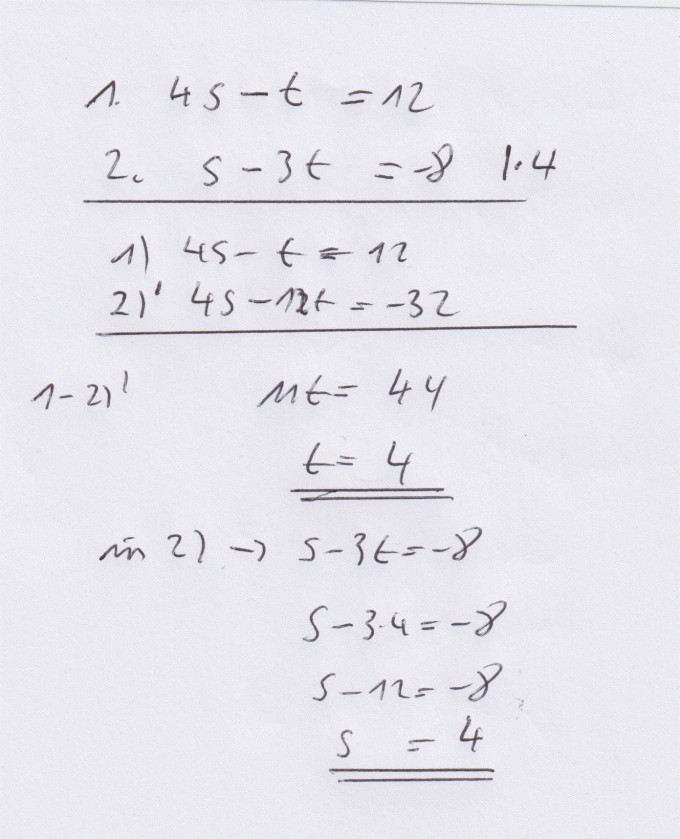 1. 4s - t = 12
2. s - 3t = -8 |·4
1) 4s - t = 12
2)' 4s - 12t = -32
1 - 2)' 11t = 44
t = 4
in 2) → s - 3t = -8
s - 3·4 = -8
s - 12 = -8
s = 4